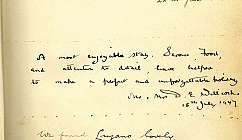 A most enjoyable stay. Swiss Food,
and attention to detail, have helped
to make a perfect and unforgettable holiday
Mr. & Mrs. D. E. Willcock
16th July 1947
We found Lugano lovely